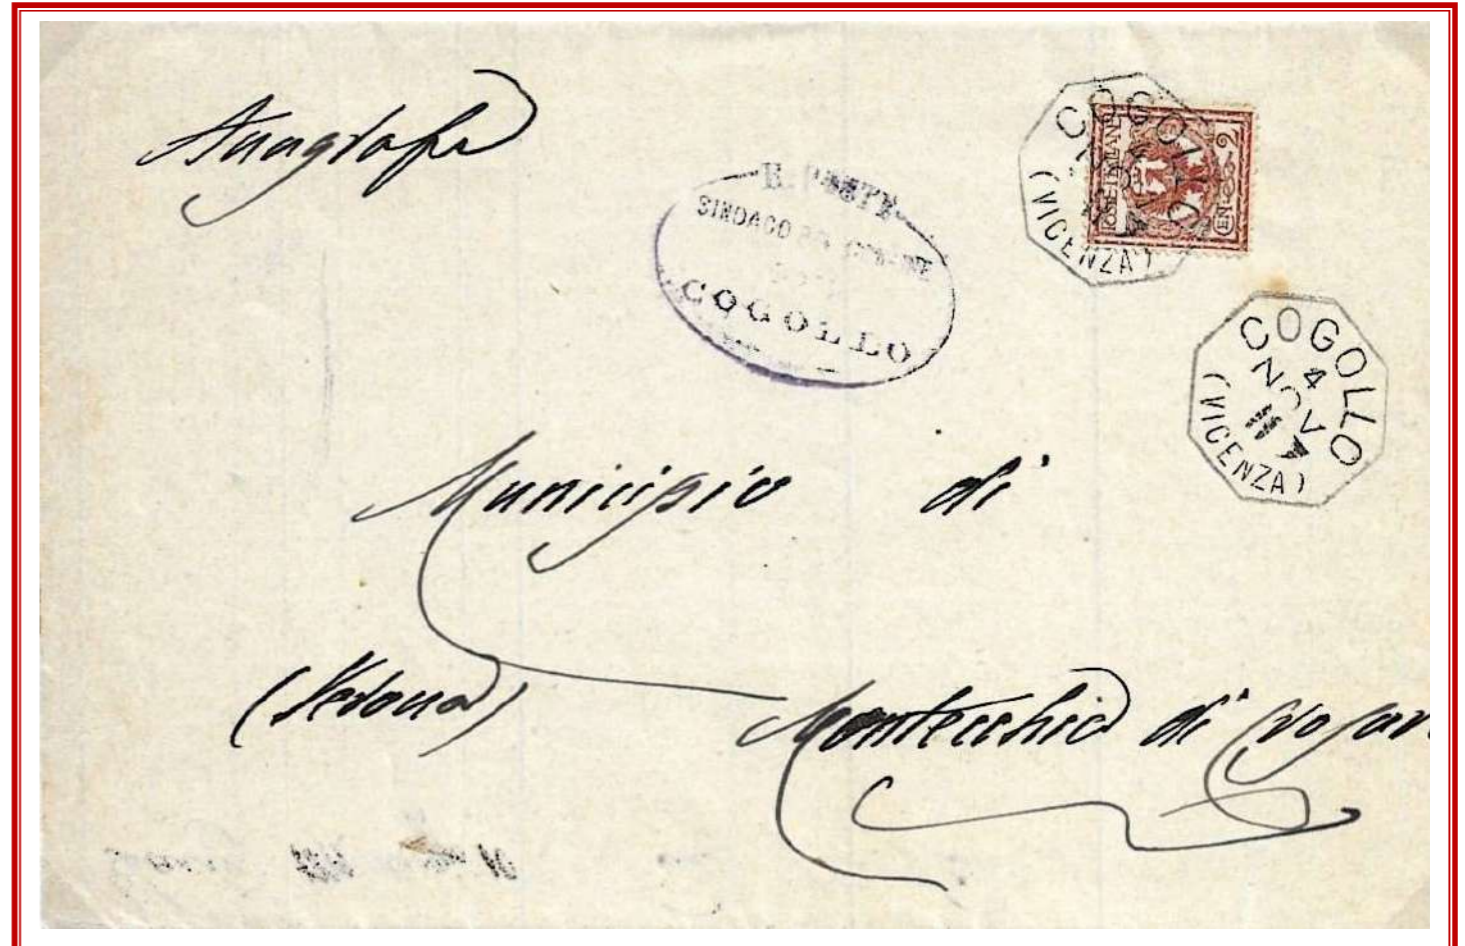 Anagrafe
R. POSTE
SINDACO
COGOLLO
COGOLLO
(VICENZA)
POSTE ITALIANE
2
COGOLLO
4
NOV
(VICENZA)
Municipio di
(Verona)
Montecchia di Crosar